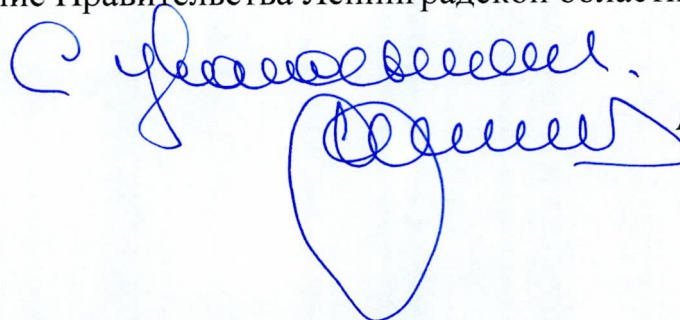 ние Правительства Ленинградской области
С уважением.